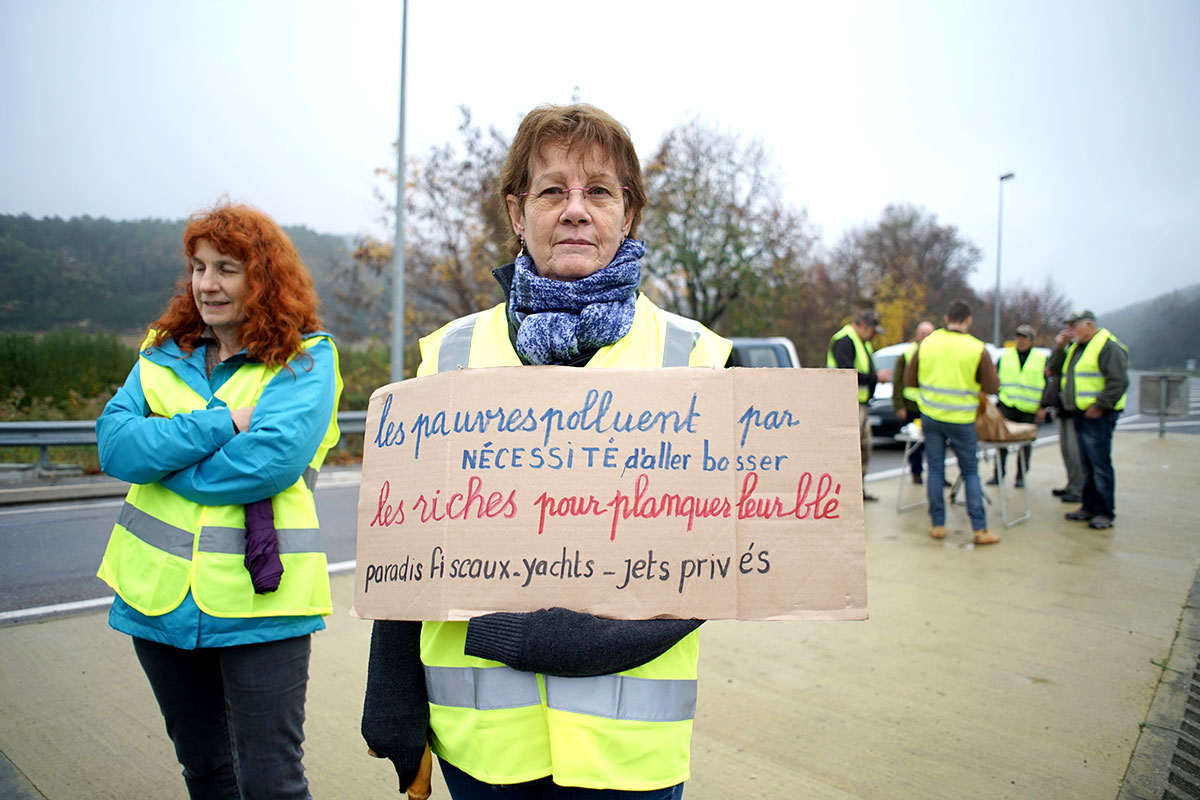 les pauvres polluent par
NÉCESSITÉ d'aller bosser
les riches pour planquer leur blé
paradis fiscaux - yachts - jets privés